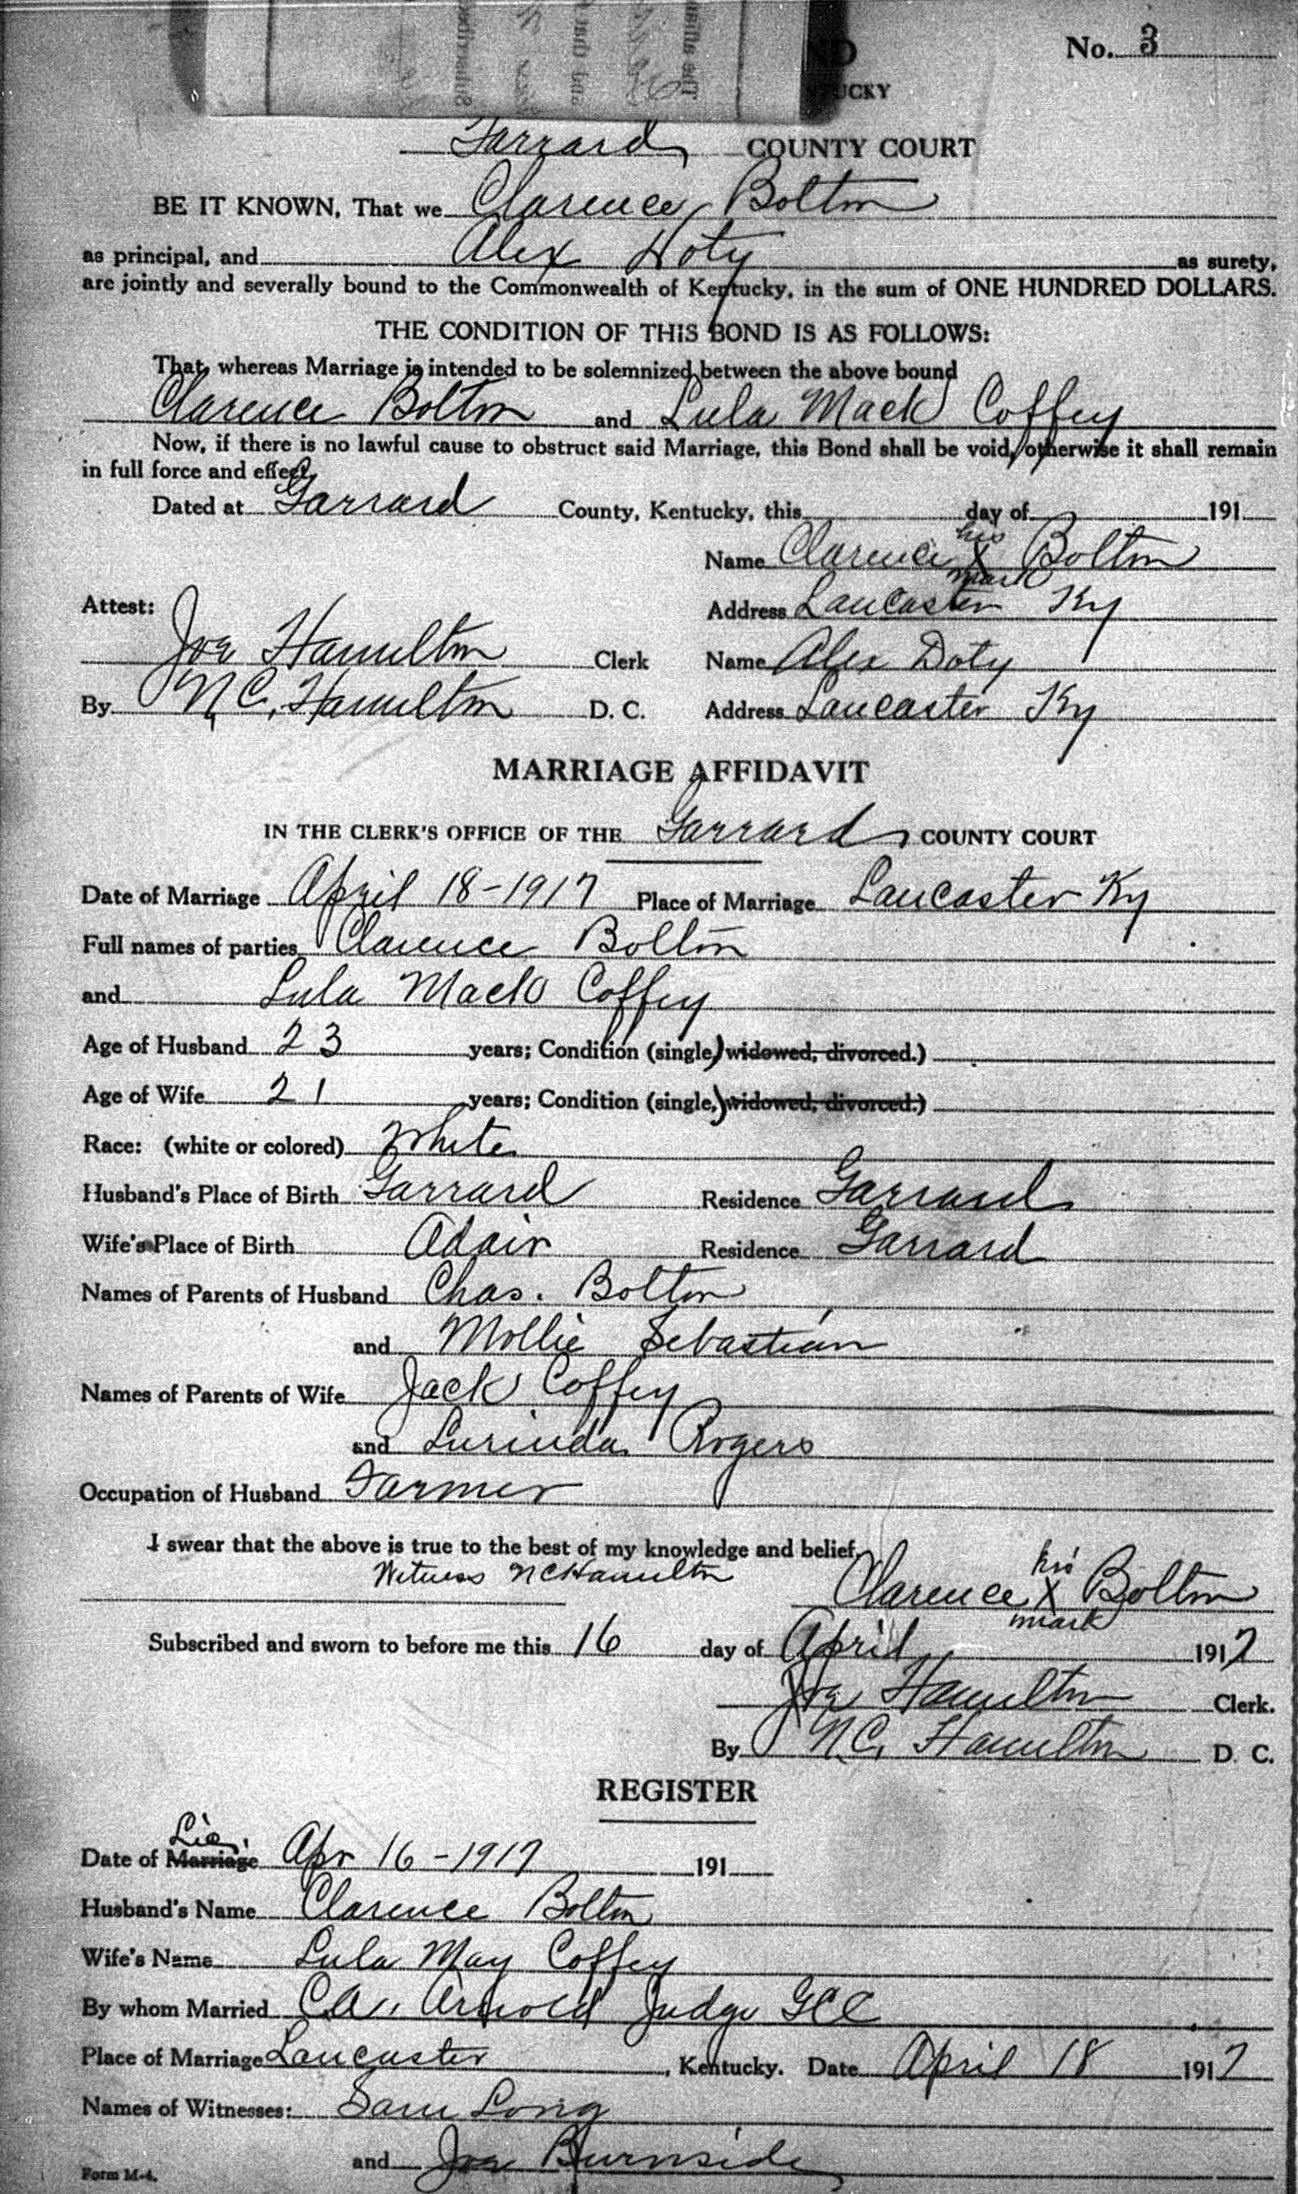 No. 3
Garrard COUNTY COURT
BE IT KNOWN, That we Clarence Bolton
as principal, and Alex Doty as surety,
are jointly and severally bound to the Commonwealth of Kentucky, in the sum of ONE HUNDRED DOLLARS.
THE CONDITION OF THIS BOND IS AS FOLLOWS:
That, whereas Marriage is intended to be solemnized between the above bound
Clarence Bolton and Lula Mack Coffey
Now, if there is no lawful cause to obstruct said Marriage, this Bond shall be void, otherwise it shall remain
in full force and effect.
Dated at Garrard County, Kentucky, this day of 191
Name Clarence his X mark Bolton
Attest:
Address Lancaster Ky
Joe Hamilton Clerk Name Alex Doty
By N.C. Hamilton D. C. Address Lancaster Ky
MARRIAGE AFFIDAVIT
IN THE CLERK'S OFFICE OF THE Garrard COUNTY COURT
Date of Marriage April 18-1917 Place of Marriage Lancaster Ky
Full names of parties Clarence Bolton
and Lula Mack Coffey
Age of Husband 23 years; Condition (single,) widowed, divorced.)
Age of Wife 21 years; Condition (single,) widowed, divorced.)
Race: (white or colored) White
Husband's Place of Birth Garrard Residence Garrard
Wife's Place of Birth Adair Residence Garrard
Names of Parents of Husband Chas. Bolton
and Mollie Sebastian
Names of Parents of Wife Jack Coffey
and Lurinda Rogers
Occupation of Husband Farmer
I swear that the above is true to the best of my knowledge and belief
Witness NC Hamilton Clarence his X mark Bolton
Subscribed and sworn to before me this 16 day of April 1917
Joe Hamilton Clerk.
By N.C. Hamilton D. C.
REGISTER
Date of Marriage Lic. Apr 16-1917 191
Husband's Name Clarence Bolton
Wife's Name Lula May Coffey
By whom Married C.A. Arnold Judge GCC
Place of Marriage Lancaster, Kentucky. Date April 18 1917
Names of Witnesses: Sam Long
and Joe Burnside
Form M-4.